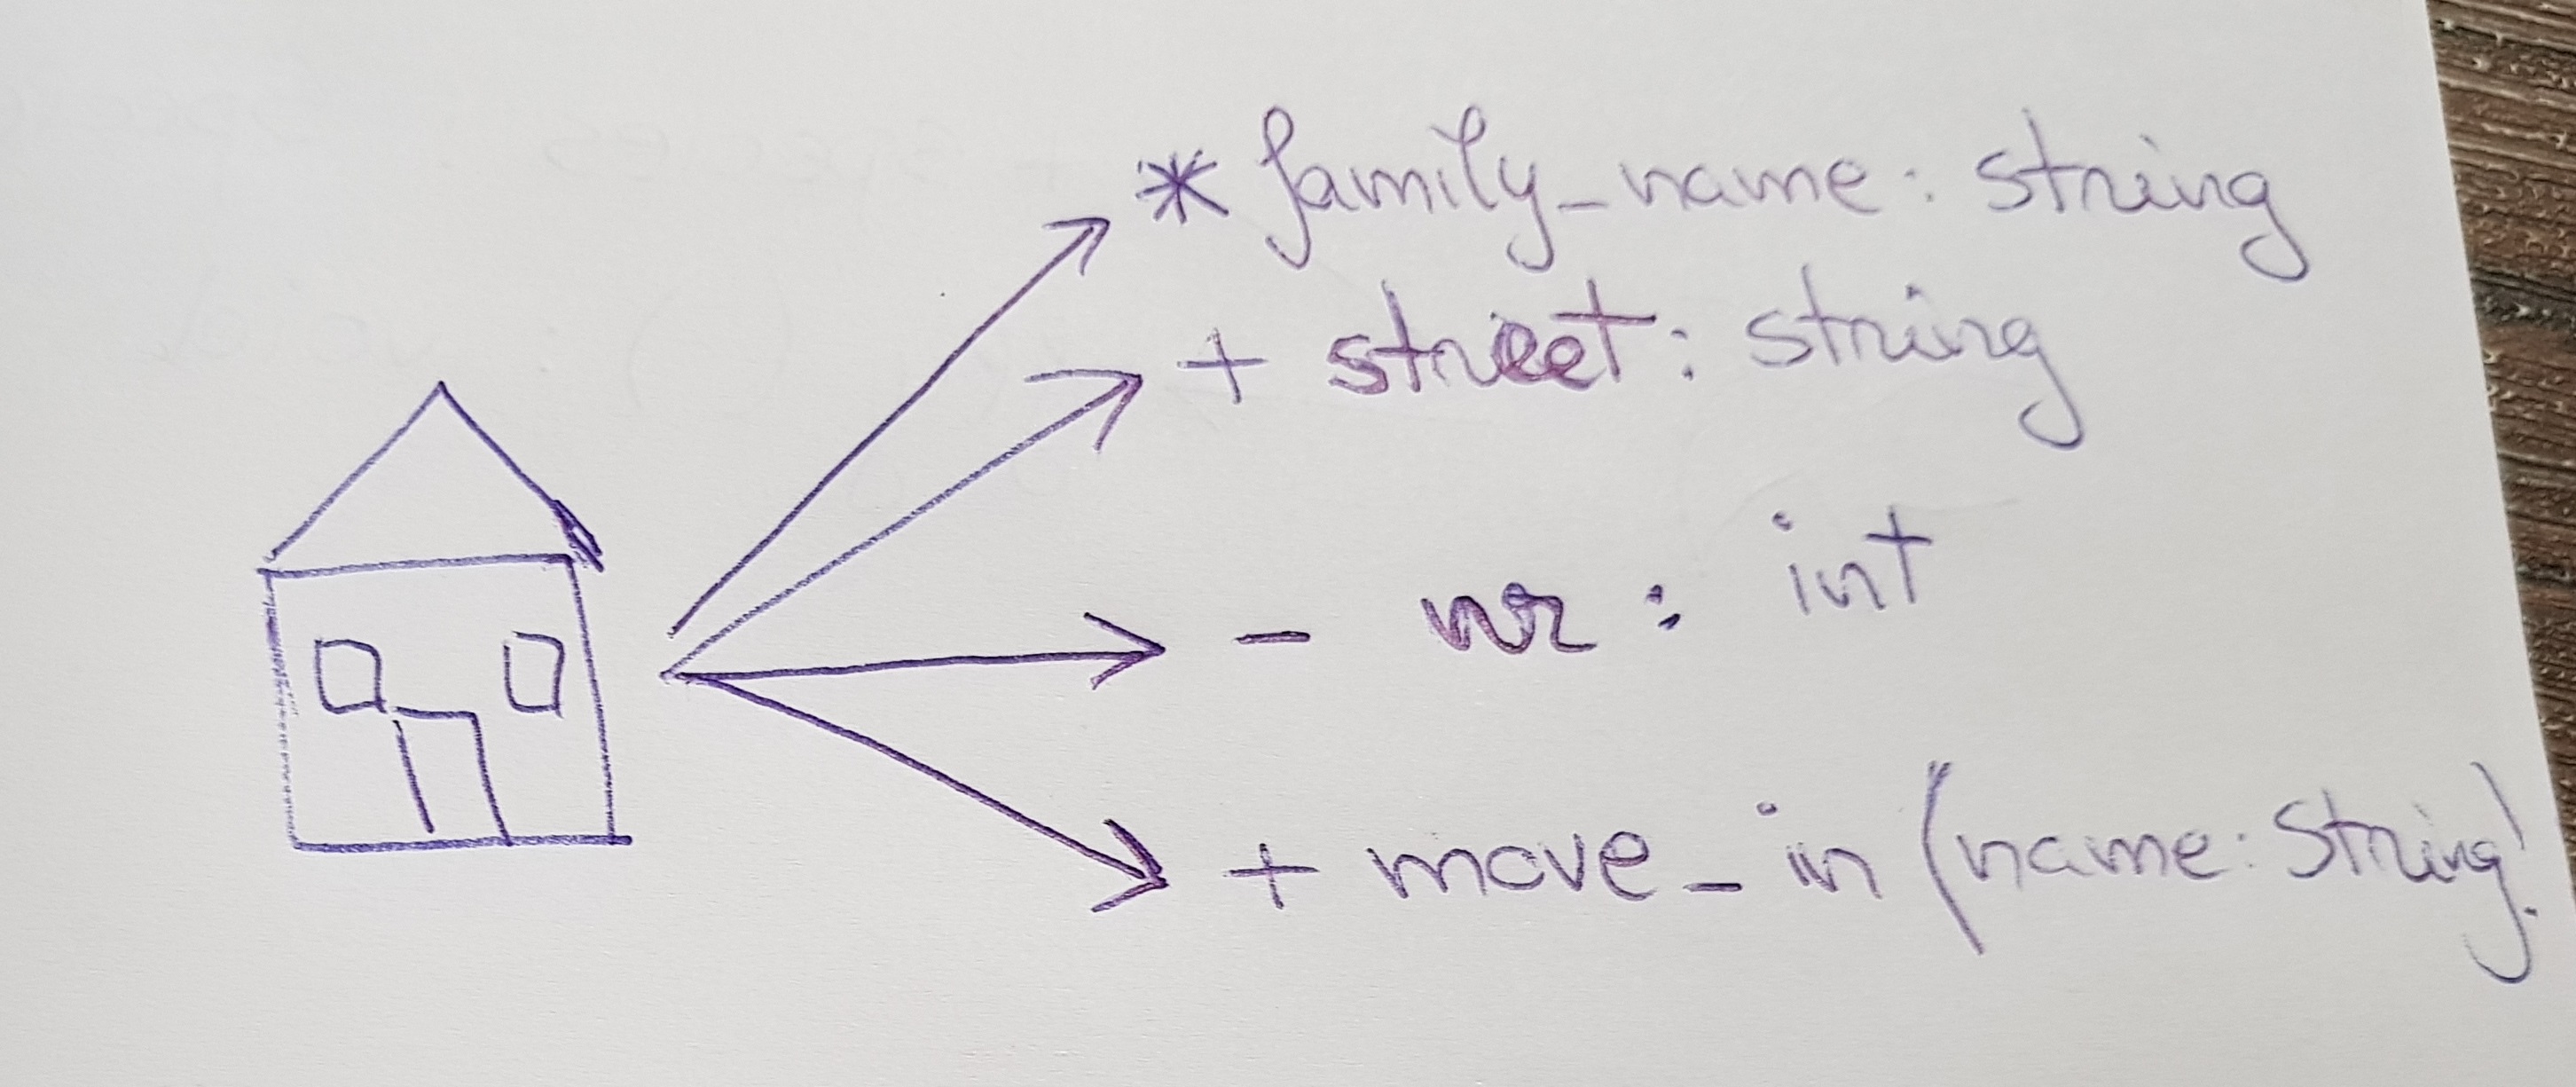 * family_name: string
+ street: string
- nr: int
+ move_in (name: String)